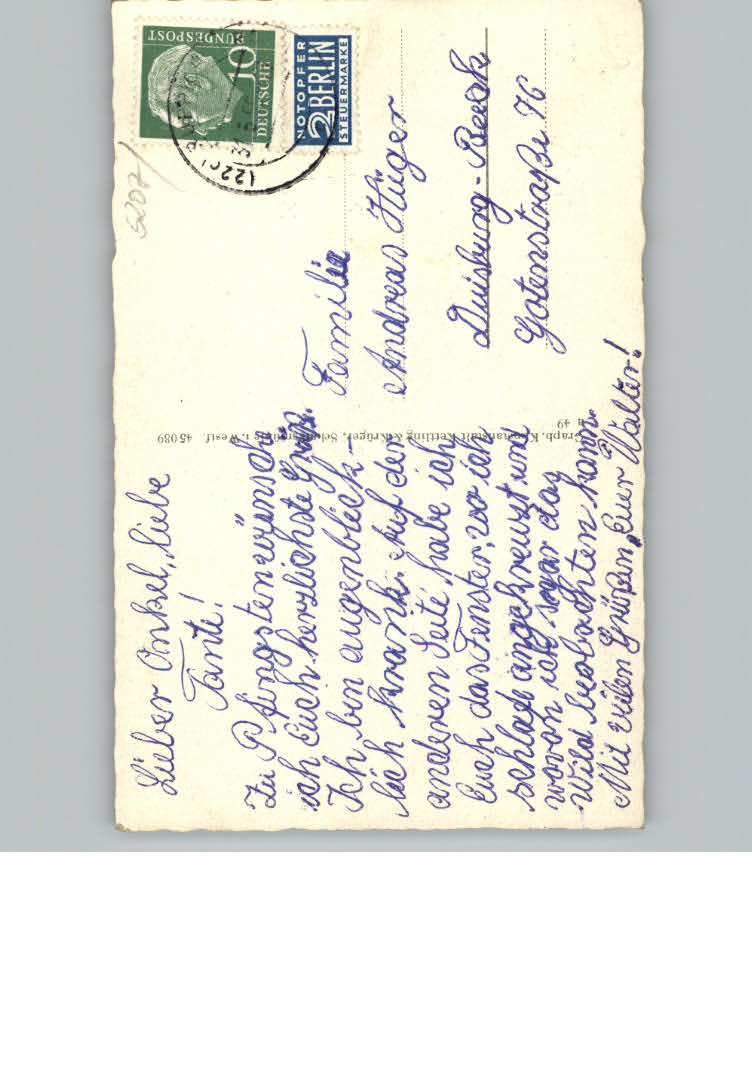 Lieber Onkel, liebe
Tante!
Zu Pfingsten wünsche
ich Euch herzlichste Grüße.
Ich bin augenblick-
lich krank. Auf der
anderen Seite habe ich
Euch das Fenster, wo ich
schlafe angekreuzt und
woran ich sogar das
Wild beobachten kann.
Mit vielen Grüßen, Euer Walter!
Familie
Andreas Hüger
Duisburg-Beeck
Gotenstraße 76
5207/
DEUTSCHE
BUNDESPOST
10
NOTOPFER
2 BERLIN
STEUERMARKE
(22c)
Graph. Kunstanstalt Kettling & Krüger, Schalksmühle i. Westf. 45089
49